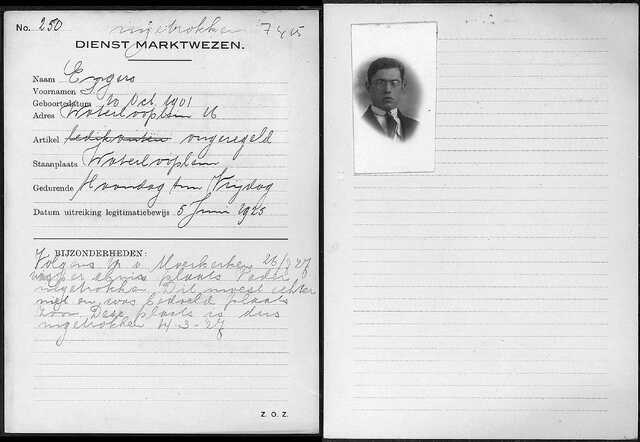 No. 250 ingetrokken
DIENST MARKTWEZEN.
Naam Eggers
Voornamen J.
Geboortedatum 20 Oct. 1901
Adres Waterlooplein 16
Artikel ongeregeld
Staanplaats Waterlooplein
Gedurende Maandag t/m Vrijdag
Datum uitreiking legitimatiebewijs 5 Juni 1925
BIJZONDERHEDEN:
Volgens v Moerkerken 26/2 27
was er abuis plaats Vader
ingetrokken. Dit moest echter
niet en was bedoeld plaats
zoon. Deze plaats is dus
ingetrokken 4-3-27
Z. O. Z.